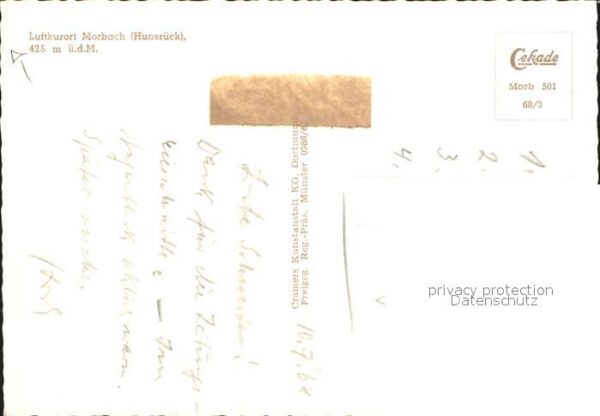 Luftkurort Morbach (Hunsrück),
425 m ü.d.M.
Cekade
Morb 501
68/3
Cramers Kunstanstalt KG, Dortmund
Freigeg. Reg.-Präs. Münster 0986/6
10.7.68
Liebe Schwester!
Dank für die Zeitungs-
ausschnitte – Im
Augenblick
Später mehr.
1.
2.
3.
4.
privacy protection
Datenschutz